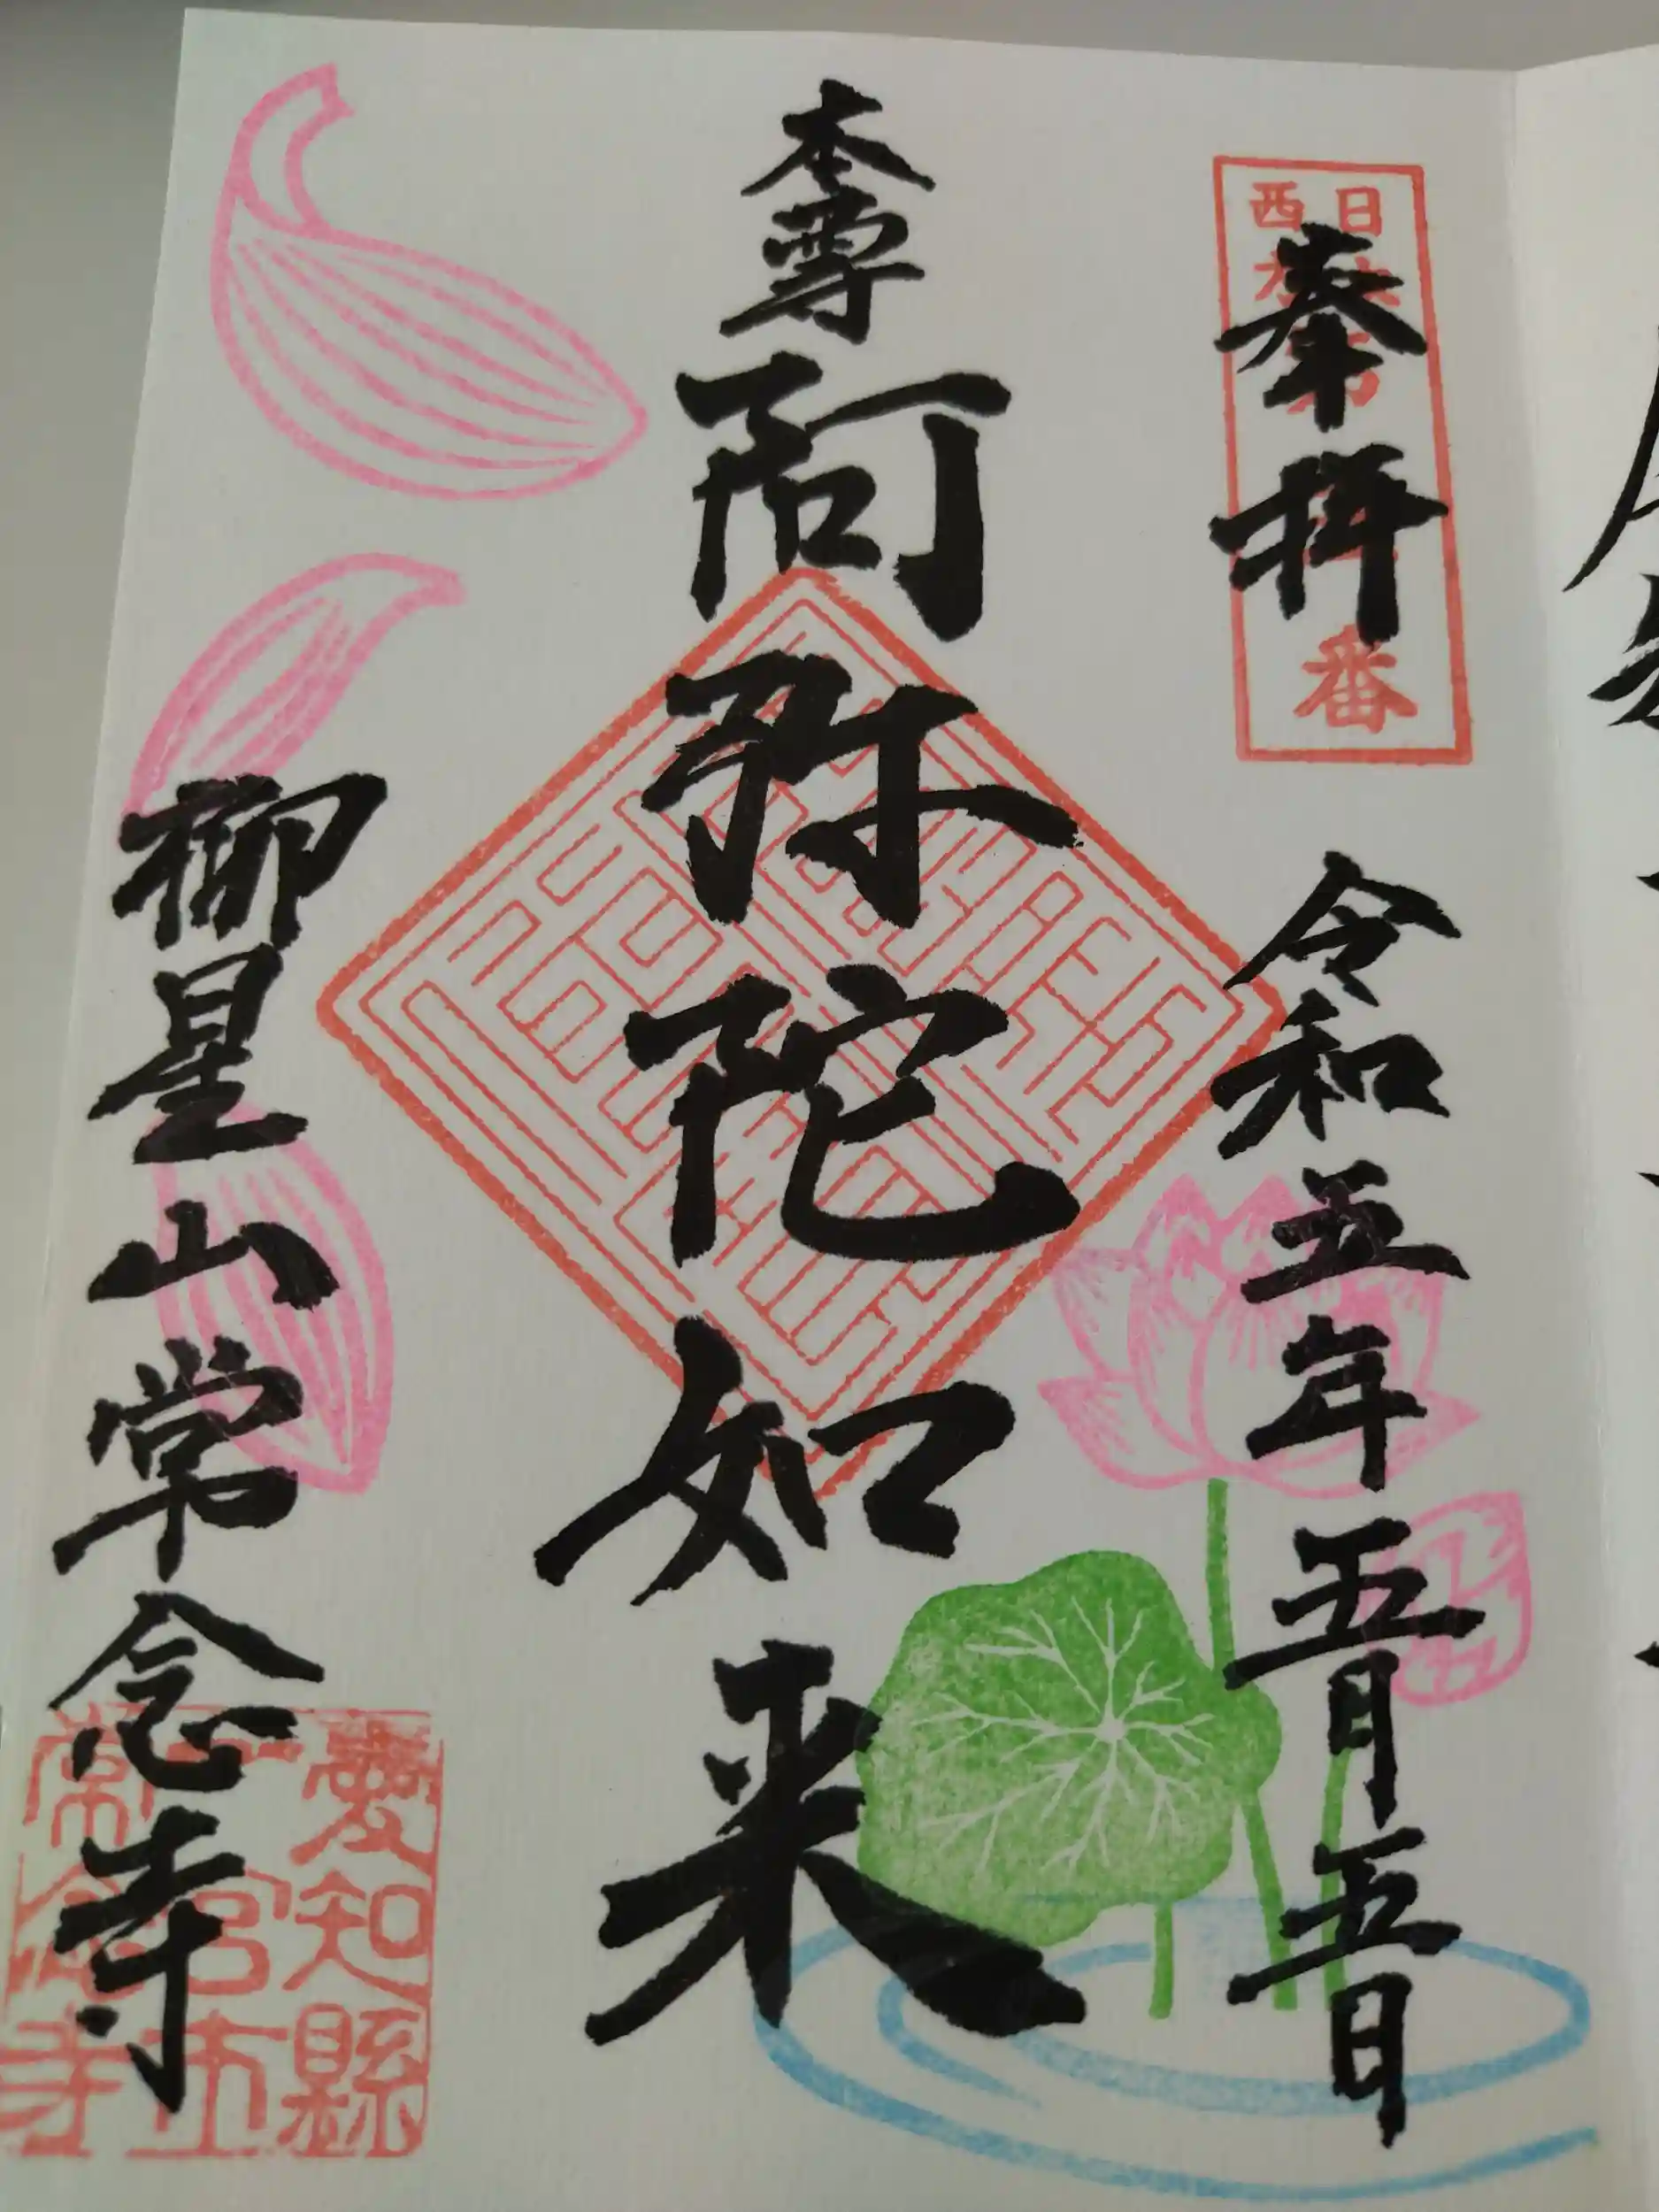 奉拝
令和五年五月五日
本尊
阿弥陀如来
柳星山常念寺
日
西
番
愛知縣
一宮市
常念寺